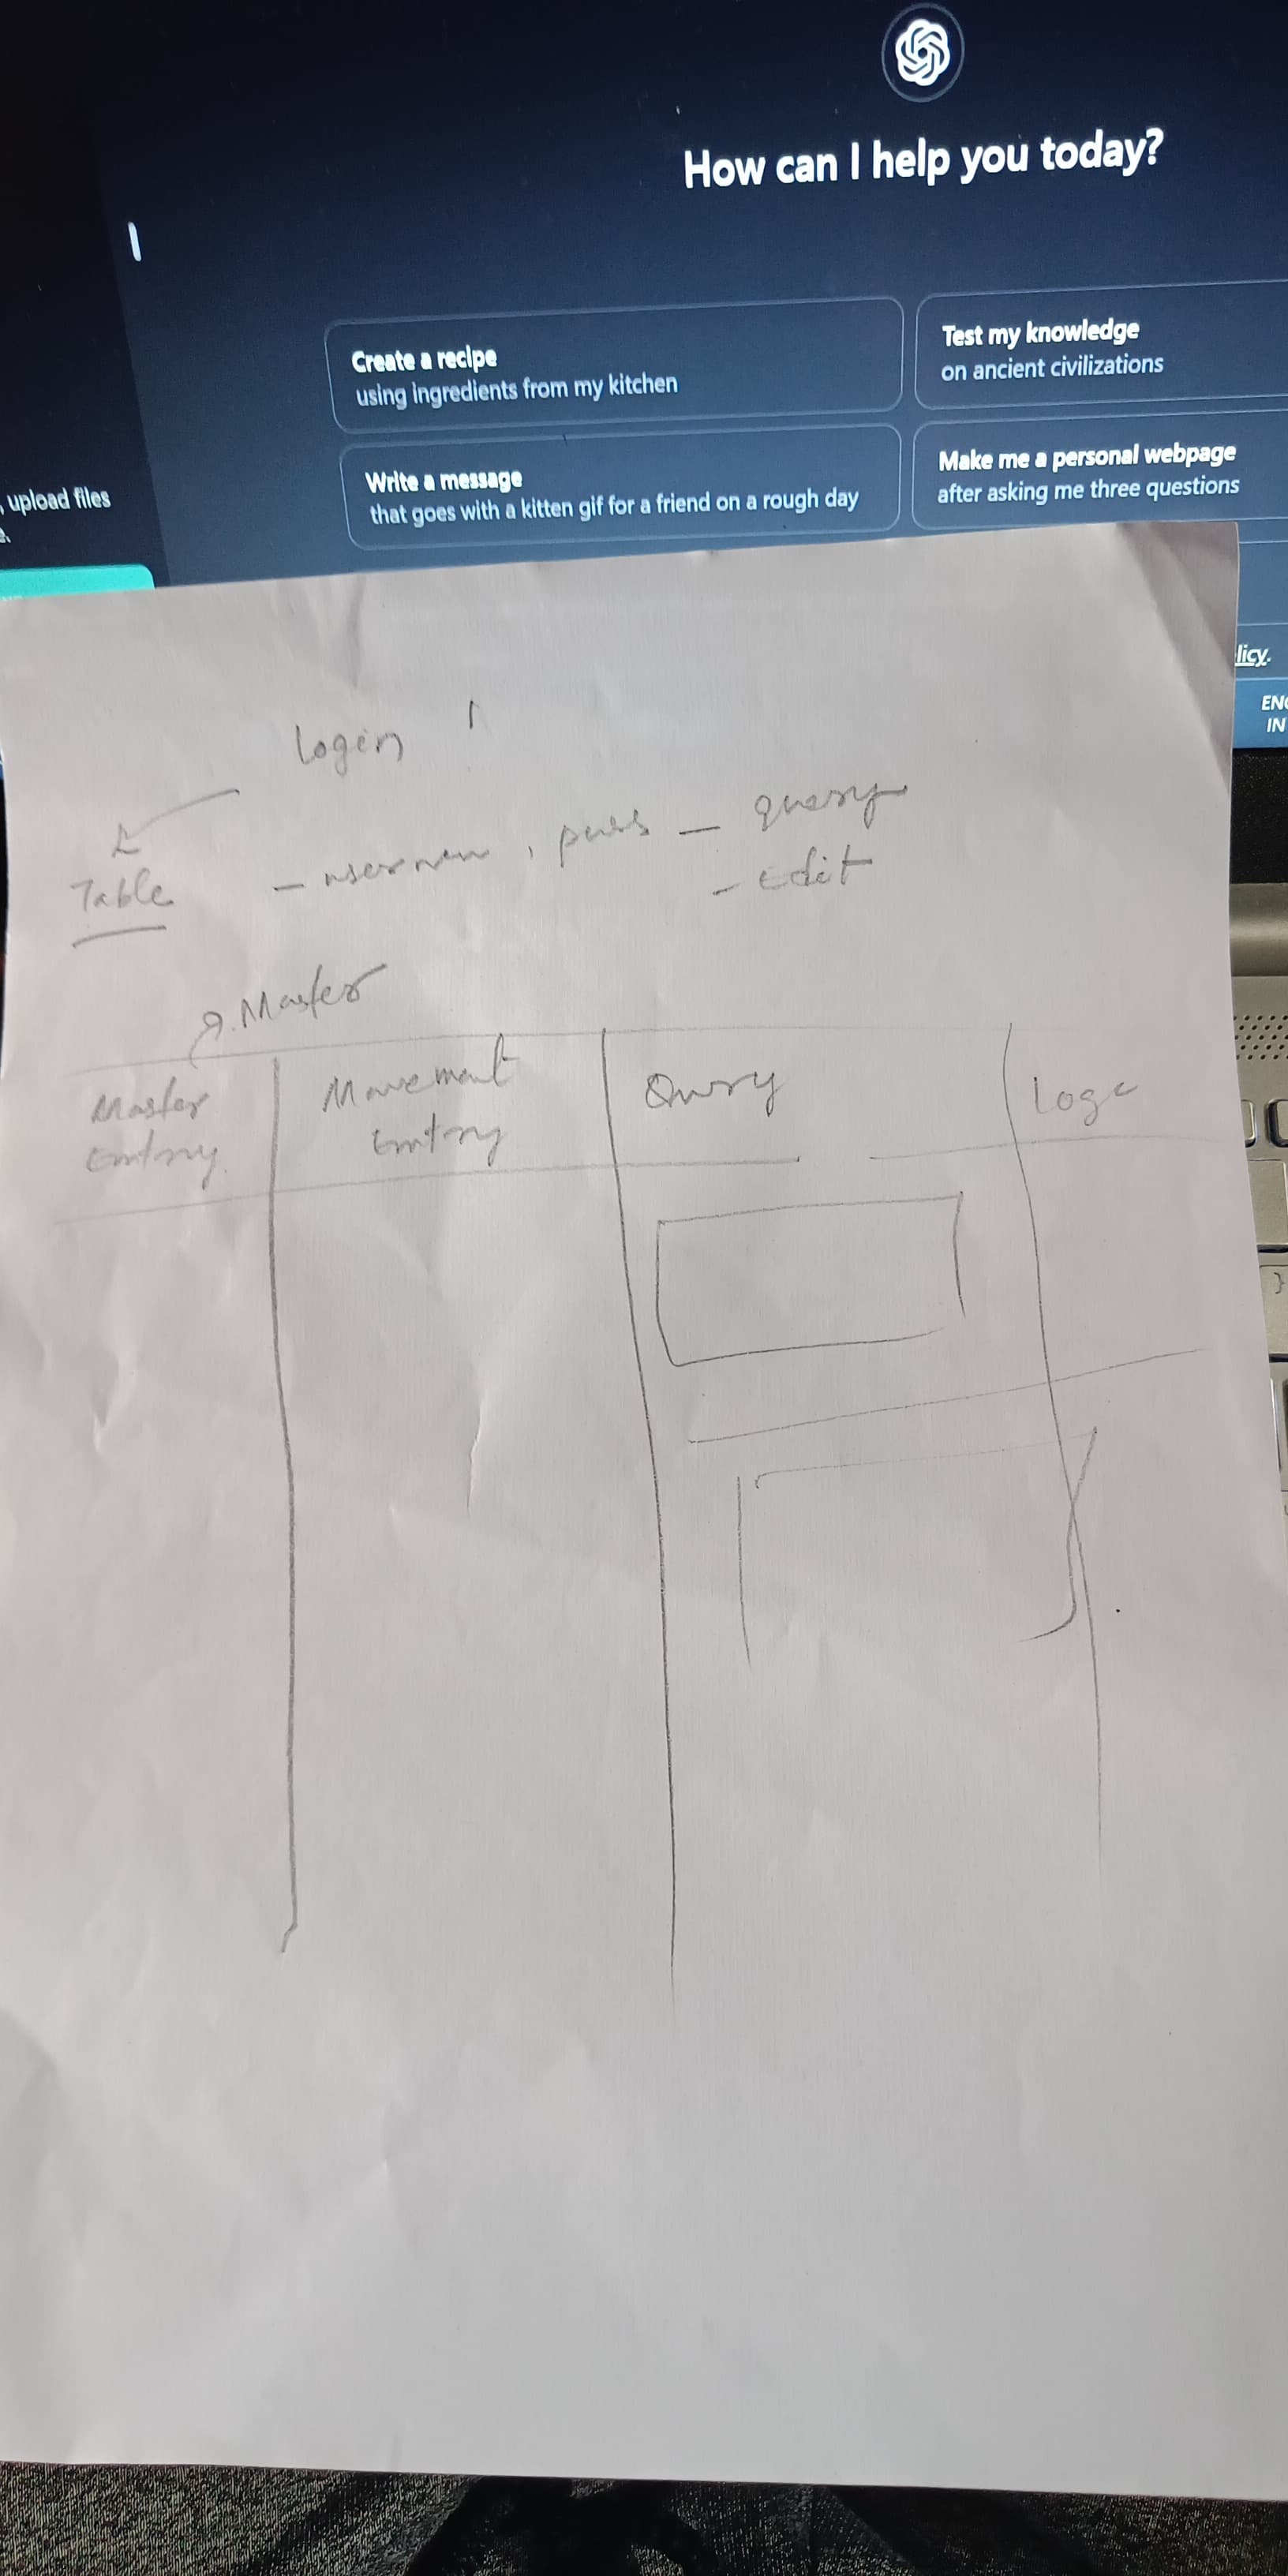 How can I help you today?
Create a recipe
using ingredients from my kitchen
Test my knowledge
on ancient civilizations
Write a message
that goes with a kitten gif for a friend on a rough day
Make me a personal webpage
after asking me three questions
, upload files
licy.
ENG
IN
Login
Table
, pass – query
- Edit
Master
Master
Entry
Movement
Entry
Query